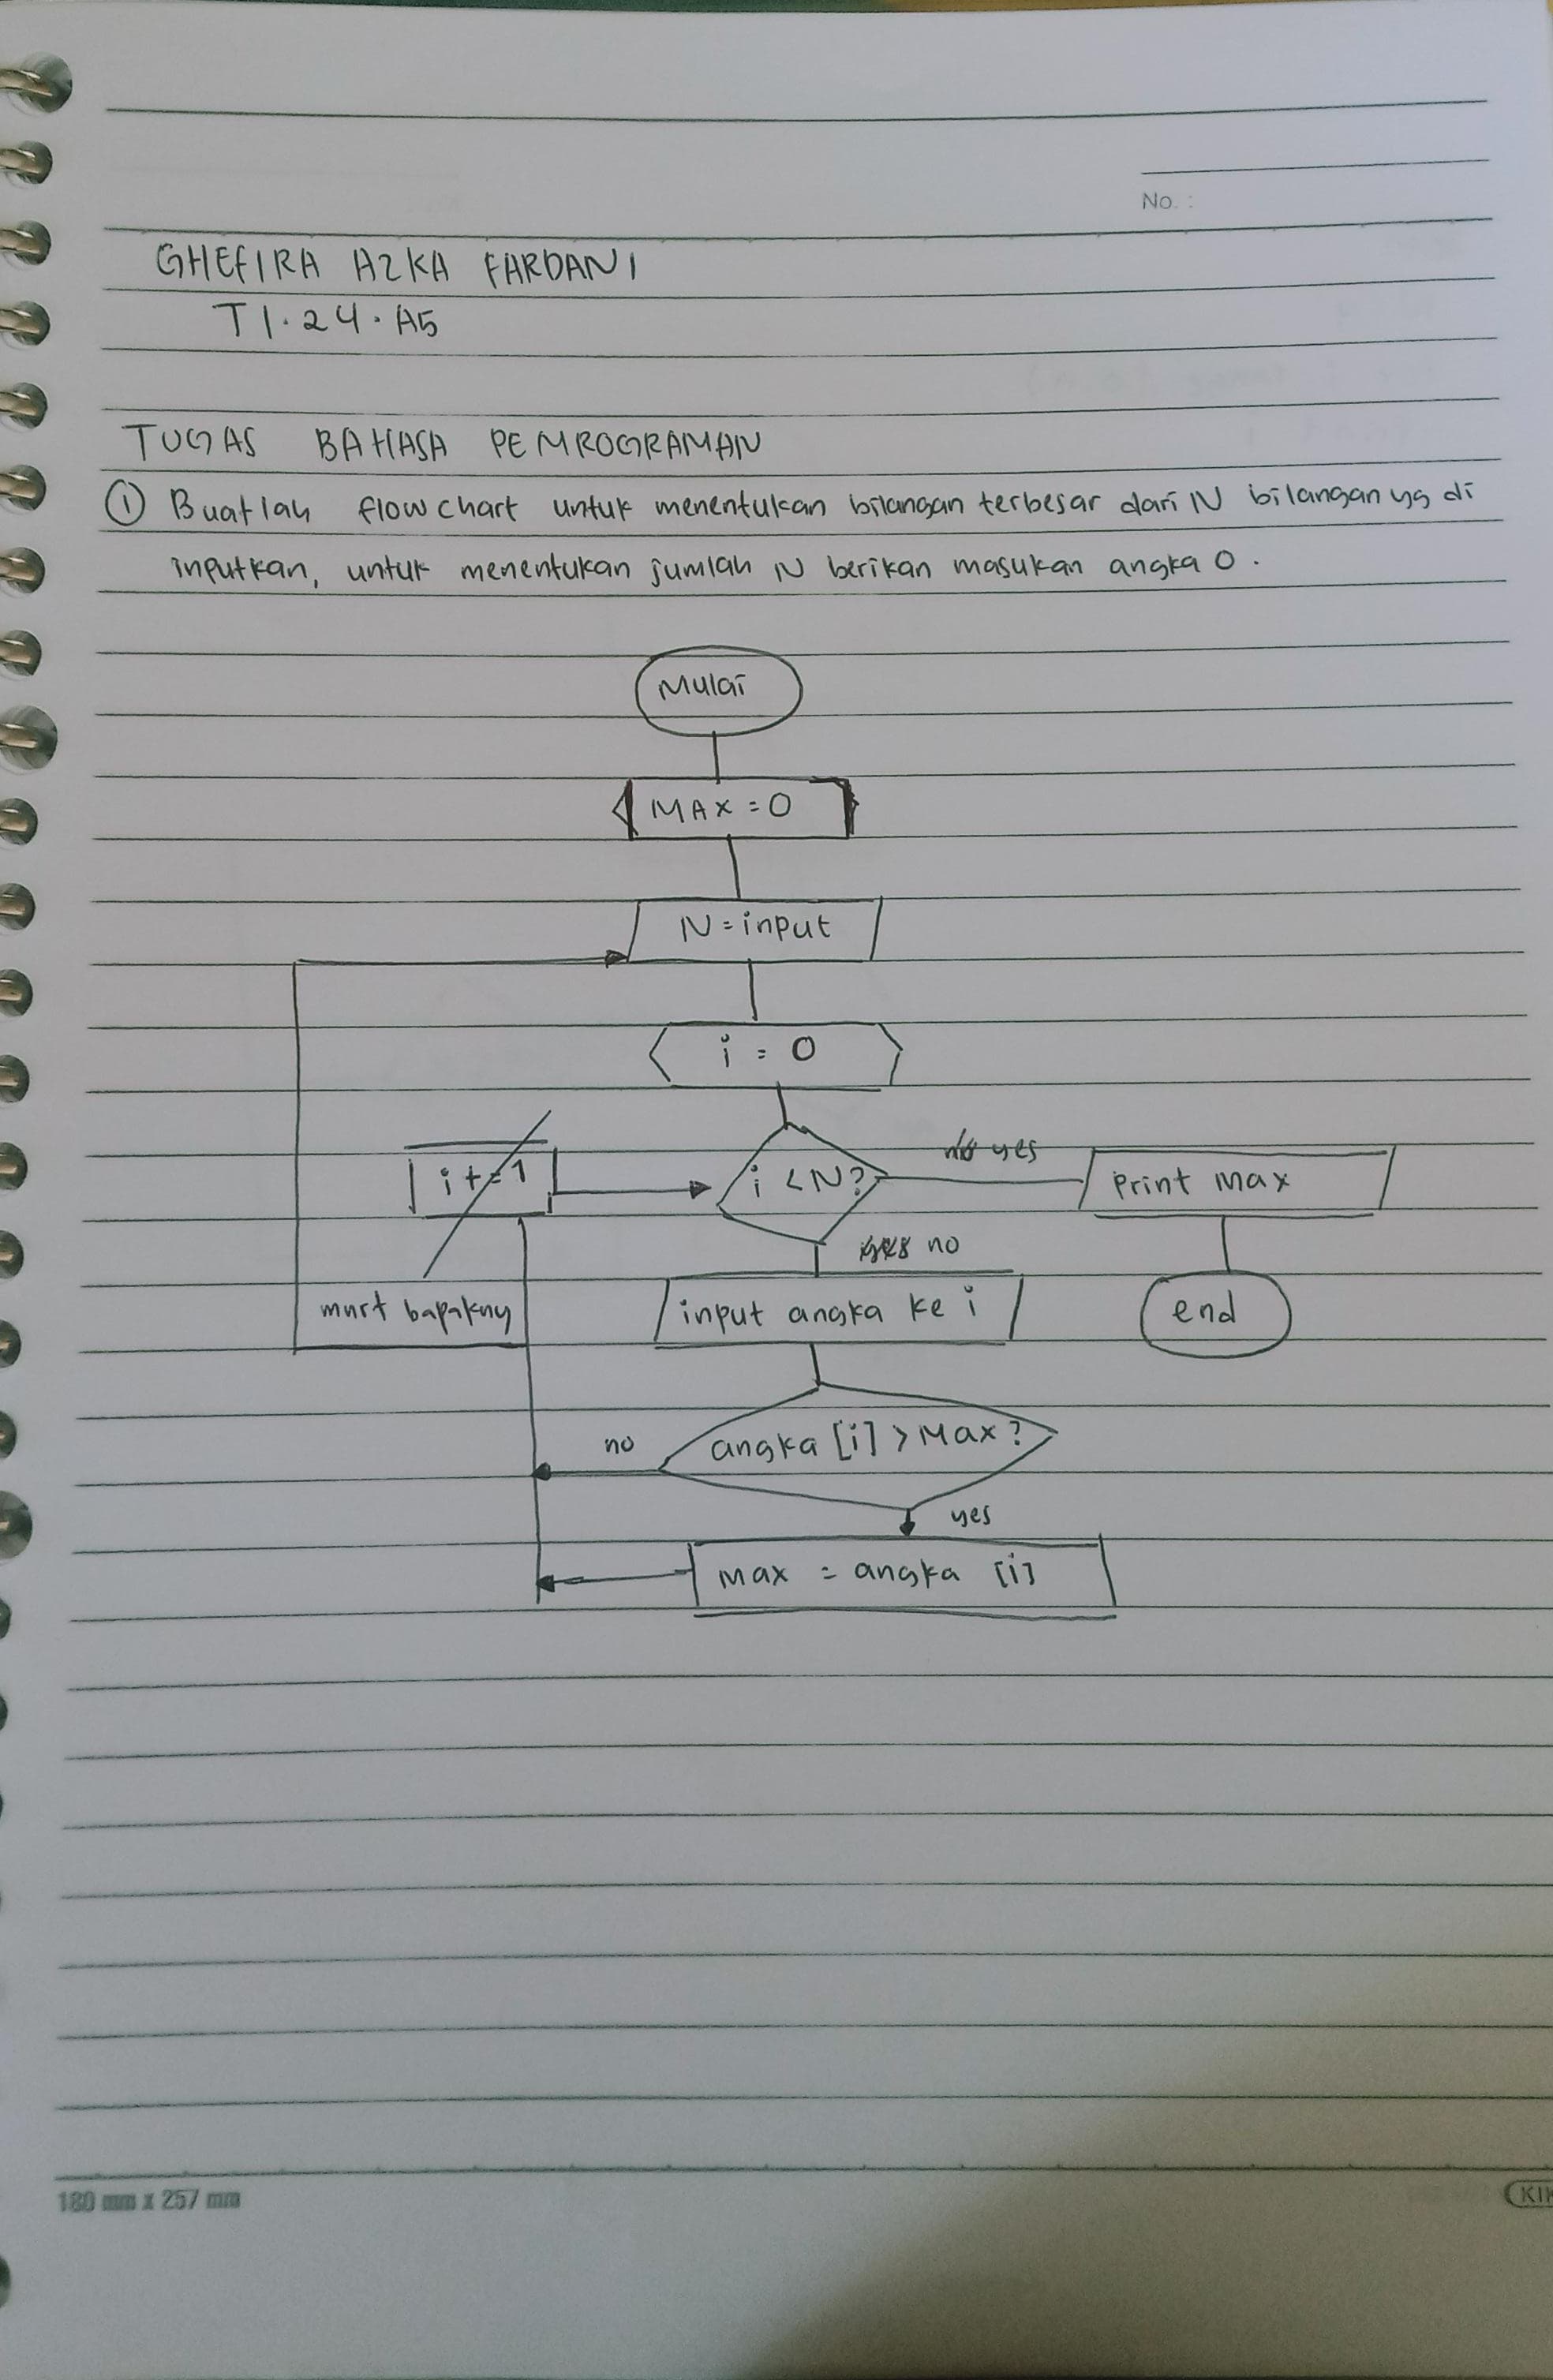 No. :
GHEFIRA AZKA FARDANI
TI.24.A5
TUGAS BAHASA PEMROGRAMAN
① Buatlah flowchart untuk menentukan bilangan terbesar dari N bilangan yg di
inputkan, untuk menentukan jumlah N berikan masukan angka 0.
Mulai
MAX = 0
N = input
i = 0
i += 1
i < N?
yes
Print Max
no
mnrt bapakny
input angka ke i
end
angka [i] > Max?
no
yes
Max = angka [i]
180 mm x 257 mm